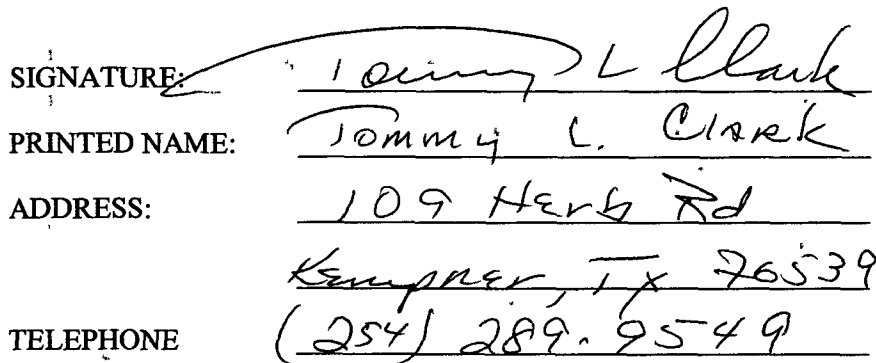 SIGNATURE: Tommy L Clark
PRINTED NAME: Tommy L. Clark
ADDRESS: 109 Herb Rd
Kempner, Tx 76539
TELEPHONE (254) 289-9549